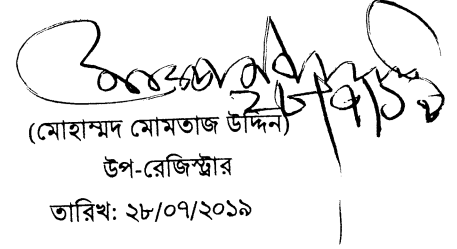 ২৮/৭/১৯
(মোহাম্মদ মোমতাজ উদ্দিন)
উপ-রেজিস্ট্রার
তারিখ: ২৮/০৭/২০১৯